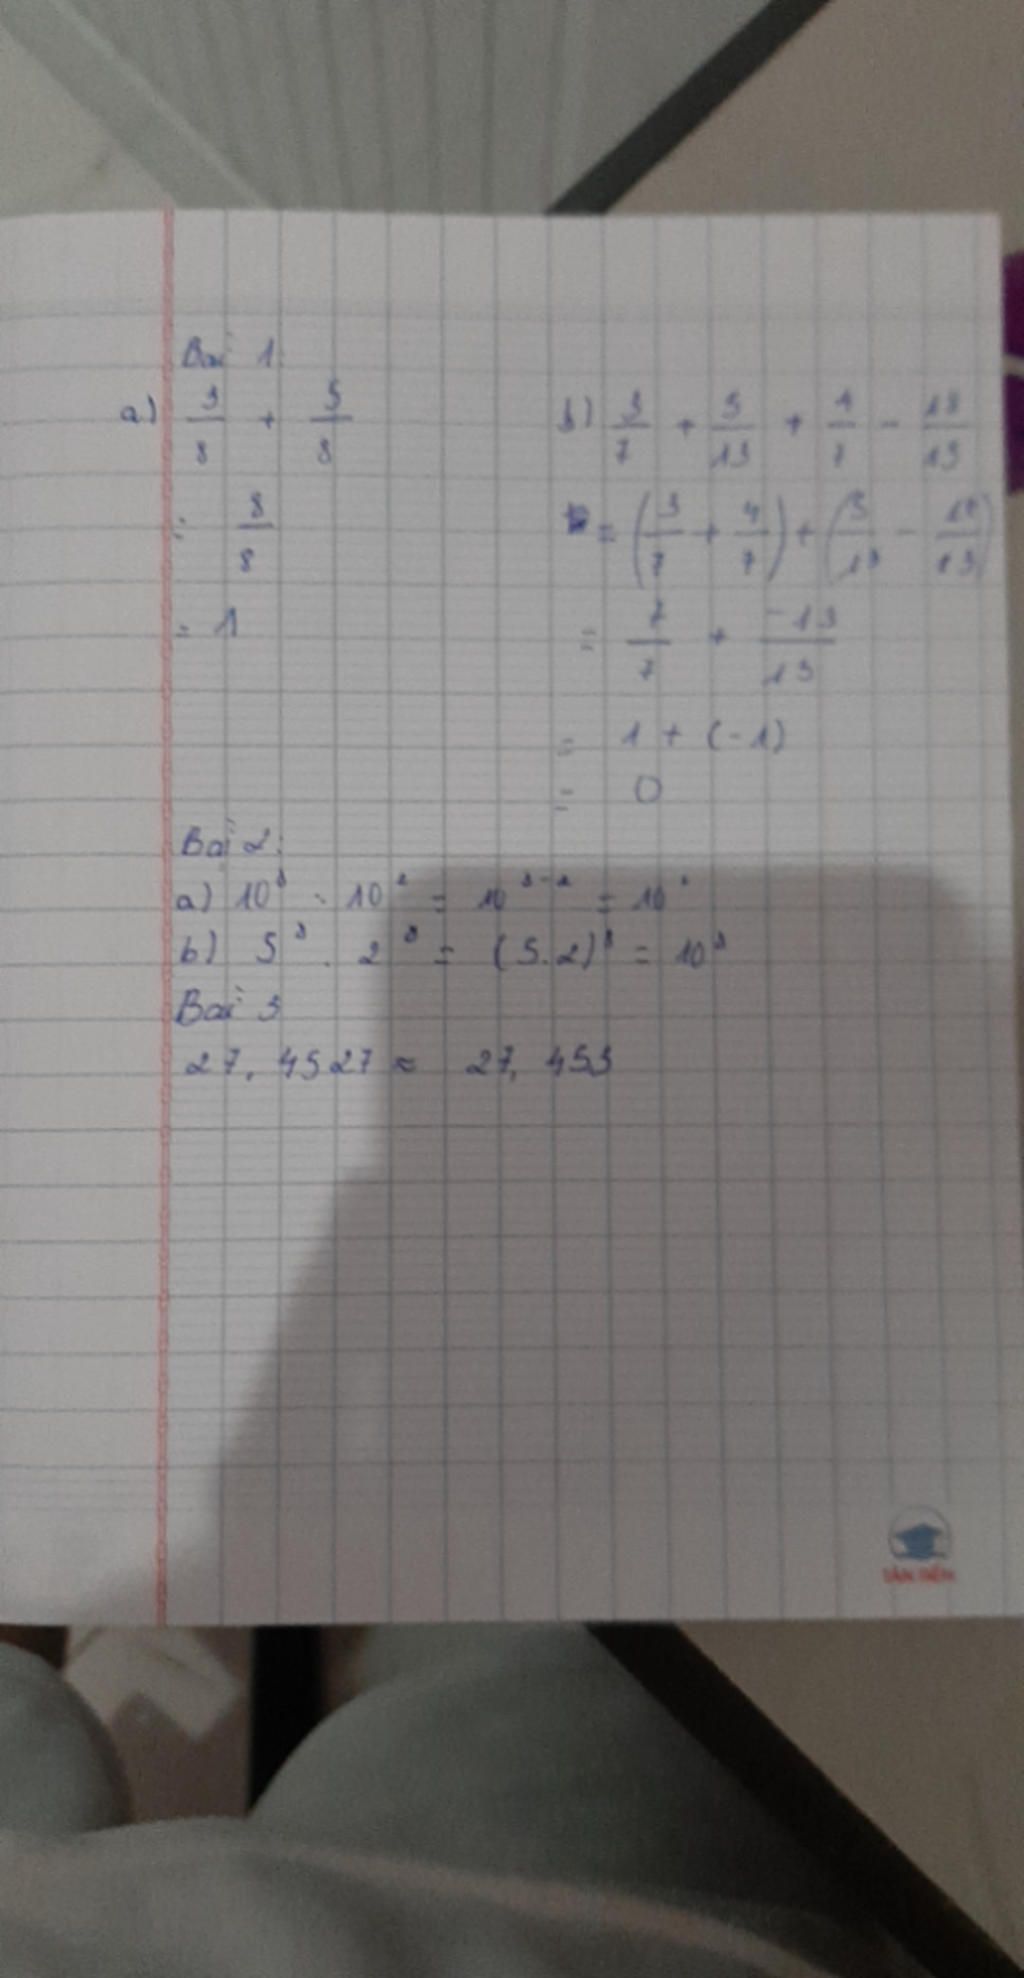 Bài 1
a) 3/8 + 5/8
= 8/8
= 1
b) 3/7 + 5/13 + 4/7 - 18/13
= (3/7 + 4/7) + (5/13 - 18/13)
= 7/7 + -13/13
= 1 + (-1)
= 0
Bài 2:
a) 10 10 = 10 = 10
b) 5³ . 2³ = (5.2)³ = 10³
Bài 3
27,4527 ≈ 27,453
TÂN TIẾN